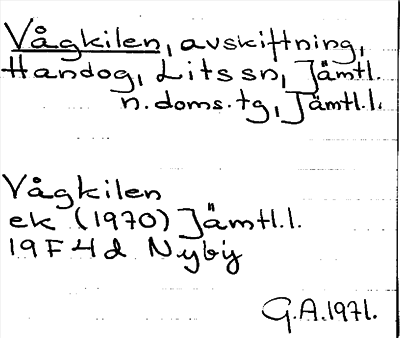 Vågkilen, avskiftning,
Handog, Lits sn, Jämtl.
n.doms.tg, Jämtl.l.
Vågkilen
ek (1970) Jämtl.l.
19F4d Nyby
G.A.1971.